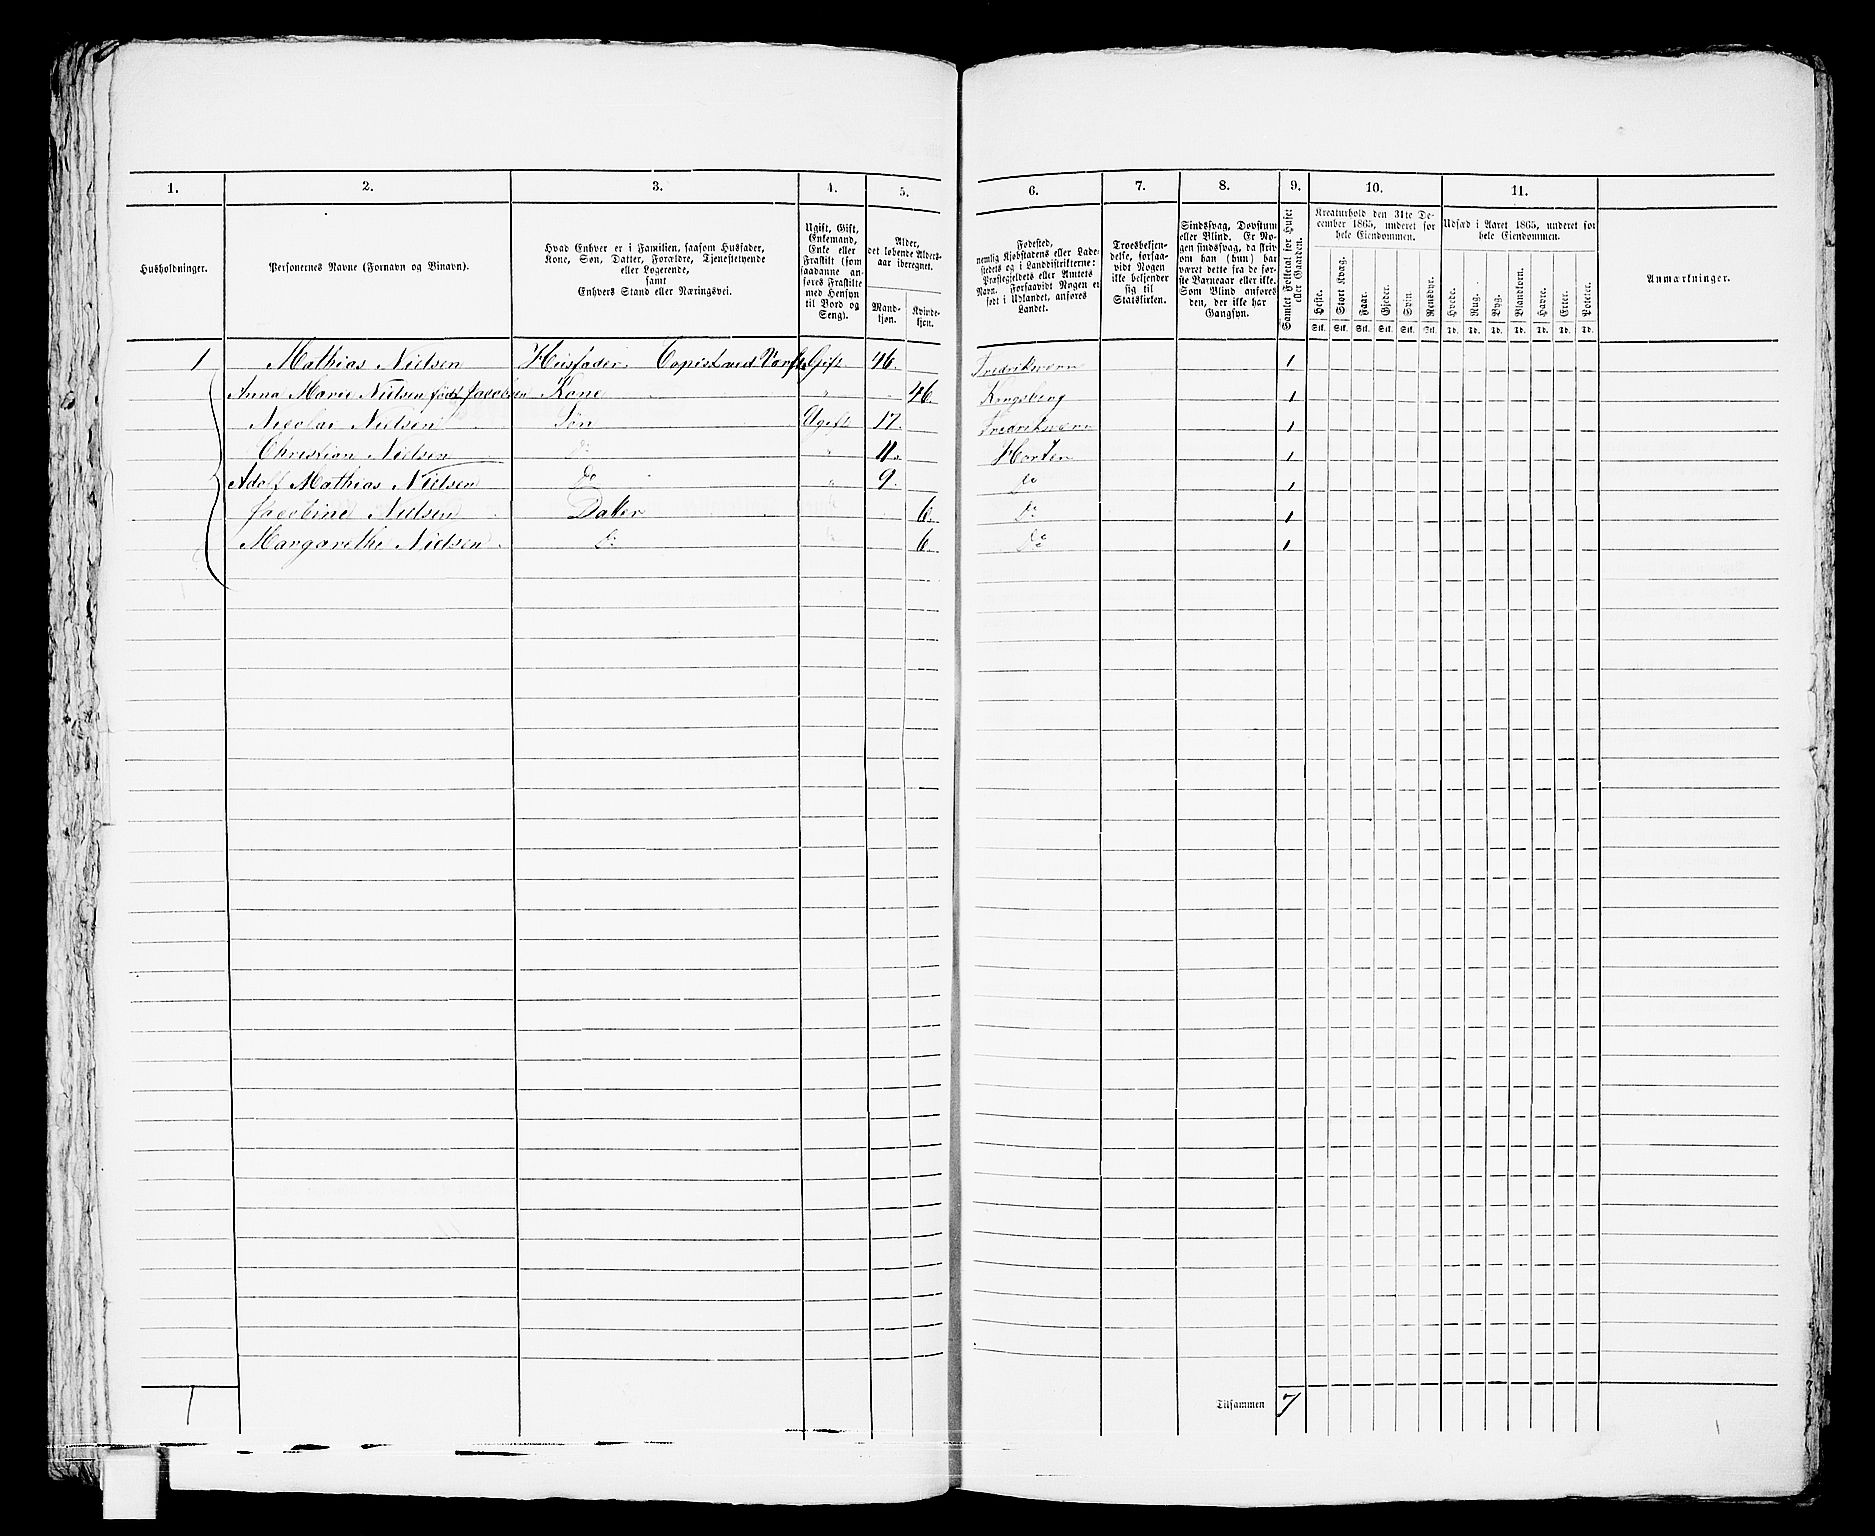 1. 2. 3. 4. 5. 6. 7. 8. 9. 10. 11.
Husholdninger.
Personernes Navne (Fornavn og Binavn).
Hvad Enhver er i Familien, saasom Husfader,
Kone, Søn, Datter, Forældre, Tjenestetyende
eller Logerende,
samt
Enhvers Stand eller Næringsvei.
Ugift, Gift,
Enkemand,
Enke eller
Fraskilt (som
saadanne an-
føres Fraskilte
med Hensyn
til Bord og
Seng).
Alder,
det løbende Alders-
aar iberegnet.
Mand-
kjøn.
Kvinde-
kjøn.
Fødested,
nemlig Kjøbstadens eller Lade-
stedets og i Landdistrikterne:
Præstegjeldets eller Amtets
Navn. Forsaavidt Nogen er
født i Udlandet, anføres
Landet.
Troesbekjen-
delse, forsaa-
vidt Nogen
ikke bekjender
sig til
Statskirken.
Sindssvag, Døvstum
eller Blind. Er No-
gen sindssvag, da skriv
om han (hun) har
været dette fra de før-
ste Barneaar eller ikke.
Som Blind anføres
den, der ikke har
Gangsyn.
Samlet Folketal for Huset
eller Gaarden.
Kreaturhold den 31te De-
cember 1865, underet for
hele Eiendommen.
Heste. Stort Kvæg. Faar. Gjeder. Svin. Rensdyr.
Stk. Stk. Stk. Stk. Stk. Stk.
Udsæd i Aaret 1865, underet for
hele Eiendommen.
Hvede. Rug. Byg. Blandkorn. Havre. Erter. Poteter.
Td. Td. Td. Td. Td. Td. Td.
Anmærkninger.
1 Mathias Nielsen Husfader Copist ved Værft. Gift 46. Fredriksværn 1
Anna Marie Nielsen født Jacobsen Kone " 46. Kongsberg 1
Nicolai Nielsen Søn Ugift 17. Fredriksværn 1
Christian Nielsen Do " 11. Horten 1
Adolf Mathias Nielsen Do " 9. Do 1
Jacobine Nielsen Datter 6. Do 1
Margarethe Nielsen Do 6. Do 1
1
Tilsammen 7